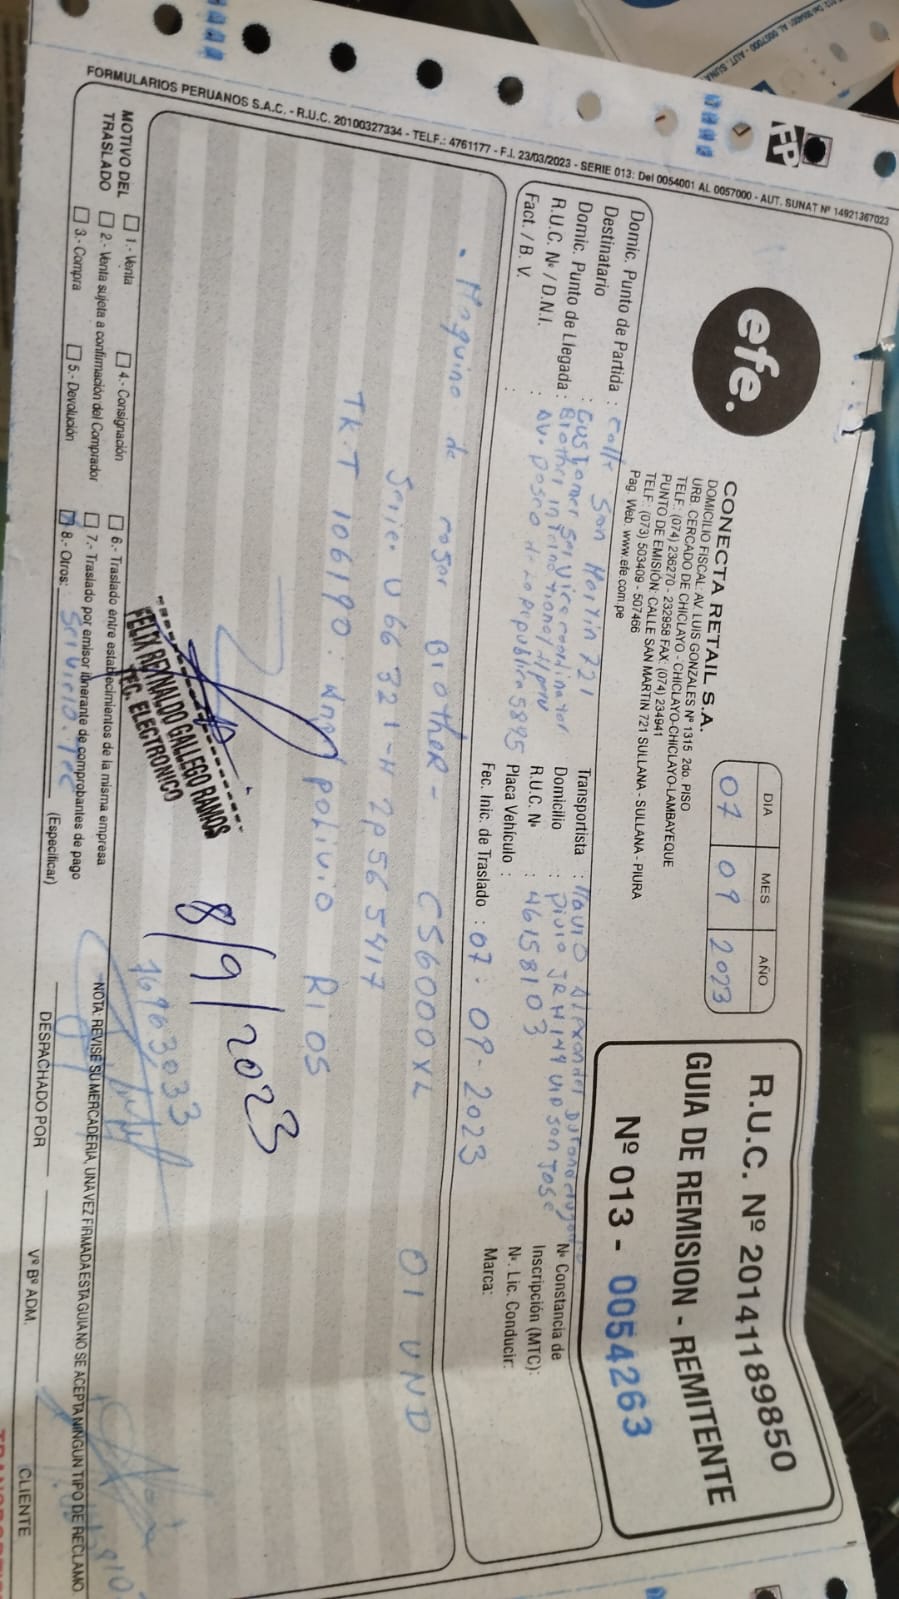 FORMULARIOS PERUANOS S.A.C. - R.U.C. 20100327334 - TELF.: 4761177 - F.I. 23/03/2023 - SERIE 013: Del 0054001 AL 0057000 - AUT. SUNAT Nº 14921367023
efe.
CONECTA RETAIL S.A.
DOMICILIO FISCAL: AV. LUIS GONZALES Nº 1315 2do. PISO
URB. CERCADO DE CHICLAYO - CHICLAYO-CHICLAYO-LAMBAYEQUE
TELF: (074) 236270 - 232958 FAX: (074) 234941
PUNTO DE EMISIÓN: CALLE SAN MARTIN 721 SULLANA - SULLANA - PIURA
TELF: (073) 503409 - 507466
Pag. Web. www.efe.com.pe
DIA MES AÑO
07 09 2023
R.U.C. Nº 20141189850
GUIA DE REMISION - REMITENTE
Nº 013 - 0054263
Domic. Punto de Partida : calle San Martin 721
Destinatario : Customer Service coordinator
Brother
Domic. Punto de Llegada : Av. Paseo de la Republica 5895
R.U.C. Nº / D.N.I. :
Fact. / B. V. :
Transportista :
Domicilio :
R.U.C. Nº : 46158103
Placa Vehículo :
Fec. Inic. de Traslado : 07 : 09 - 2023
Nº Constancia de
Inscripción (MTC):
Nº. Lic. Conducir:
Marca:
. Maquina de coser BrotheR - CS6000XL 01 UND
Serie: U66321-H2P565417
TK-T 106190: polivio Rios
FELIX REYNALDO GALLEGO RAMOS
TEC. ELECTRONICO
8/9/2023
16963033
MOTIVO DEL
TRASLADO
1.- Venta
2.- Venta sujeta a confirmación del Comprador
3.- Compra
4.- Consignación
5.- Devolución
6.- Traslado entre establecimientos de la misma empresa
7.- Traslado por emisor itinerante de comprobantes de pago
8.- Otros: Servicio. Tec
(Especificar)
NOTA: REVISE SU MERCADERIA, UNA VEZ FIRMADA ESTA GUIA NO SE ACEPTA NINGUN TIPO DE RECLAMO
DESPACHADO POR
Vº Bº ADM.
CLIENTE